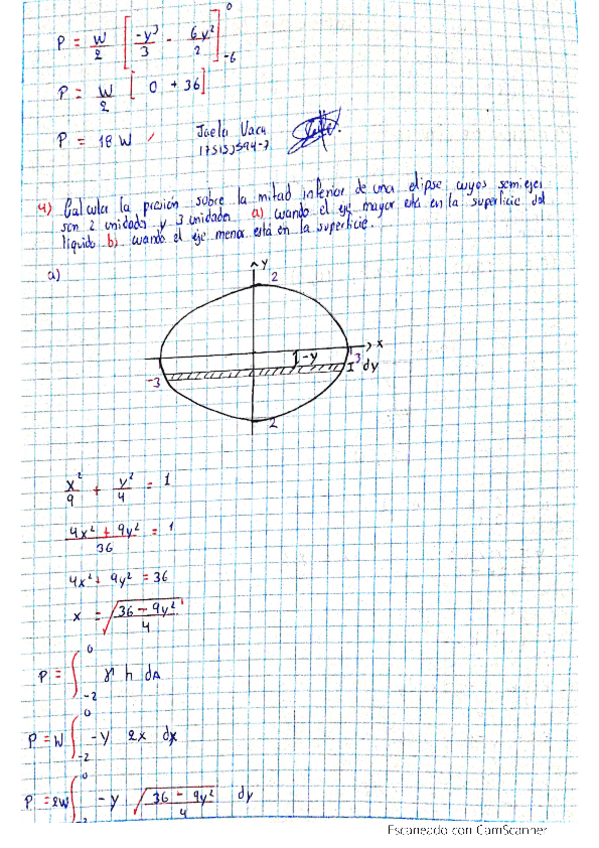 P = W/2 [ -y³/3 - 6y²/2 ]⁰₋₆
P = W/2 [ 0 + 36 ]
P = 18 W
Joela Vaca
4) Calcular la presión sobre la mitad inferior de una elipse, cuyos semiejes
son 2 unidades y 3 unidades a) cuando el eje mayor está en la superficie del
líquido b) cuando el eje menor está en la superficie.
a)
y
2
x
-y
3
-3
I dy
-2
x²/9 + y²/4 = 1
4x² + 9y²/36 = 1
4x² + 9y² = 36
x = √36 - 9y²/4
P = ∫⁰₋₂ γ h dA
P = W ∫⁰₋₂ -y 2x dx
P = 2W ∫⁰ -y √36 - 9y²/4 dy
Escaneado con CamScanner